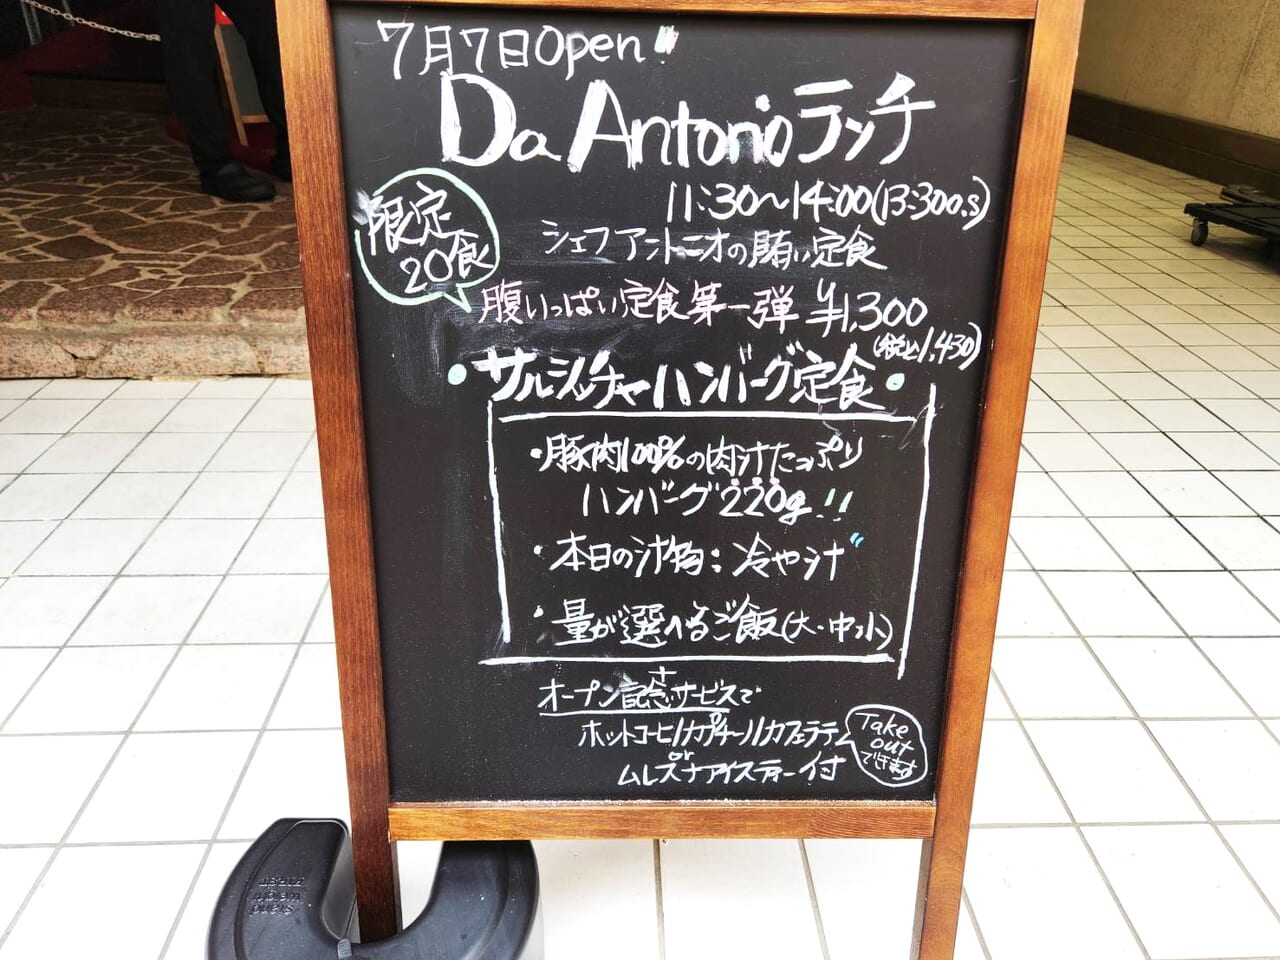 7月7日Open!!
Da Antonioランチ
11:30〜14:00(13:30 O.S)
限定
20食
シェフアントニオの賄い定食
腹いっぱい定食第一弾 ¥1,300
(税込1,430)
・サルシッチャハンバーグ定食・
・豚肉100%の肉汁たっぷり
ハンバーグ220g!!
・本日の汁物:冷や汁"
・量が選べるご飯(大・中・小)
+
オープン記念サービスで
ホットコーヒー/カプチーノ/カフェラテ
or
ムレスナアイスティー付
Take
out
できます